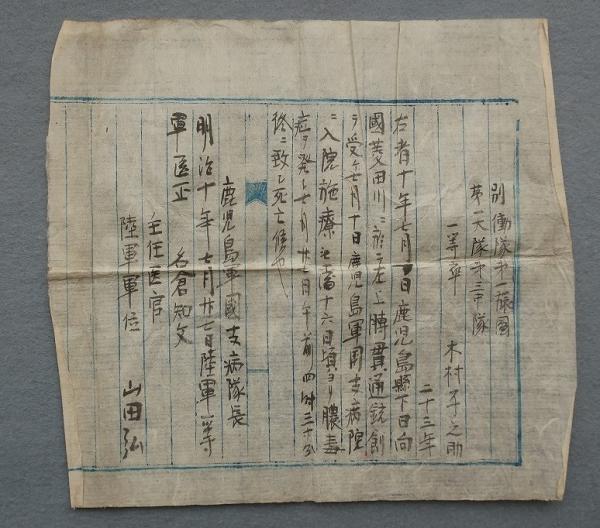 別働隊第一旅団
第一大隊第三中隊
一等卒 木村 之助
二十三年
右者十年七月 日鹿児島縣下日向
國菱田川ニ於テ左上膊貫通銃創
ヲ受ケ七月十日鹿児島軍団支病院
ニ入院施療 十六日頃ヨリ膿毒
症ヲ発シ七月廿 日午前四時三十分
終ニ致シ死亡候也
鹿児島軍團支病隊長
明治十年七月廿七日陸軍一等
軍医正 名倉知文
主任医官
陸軍軍位 山田弘